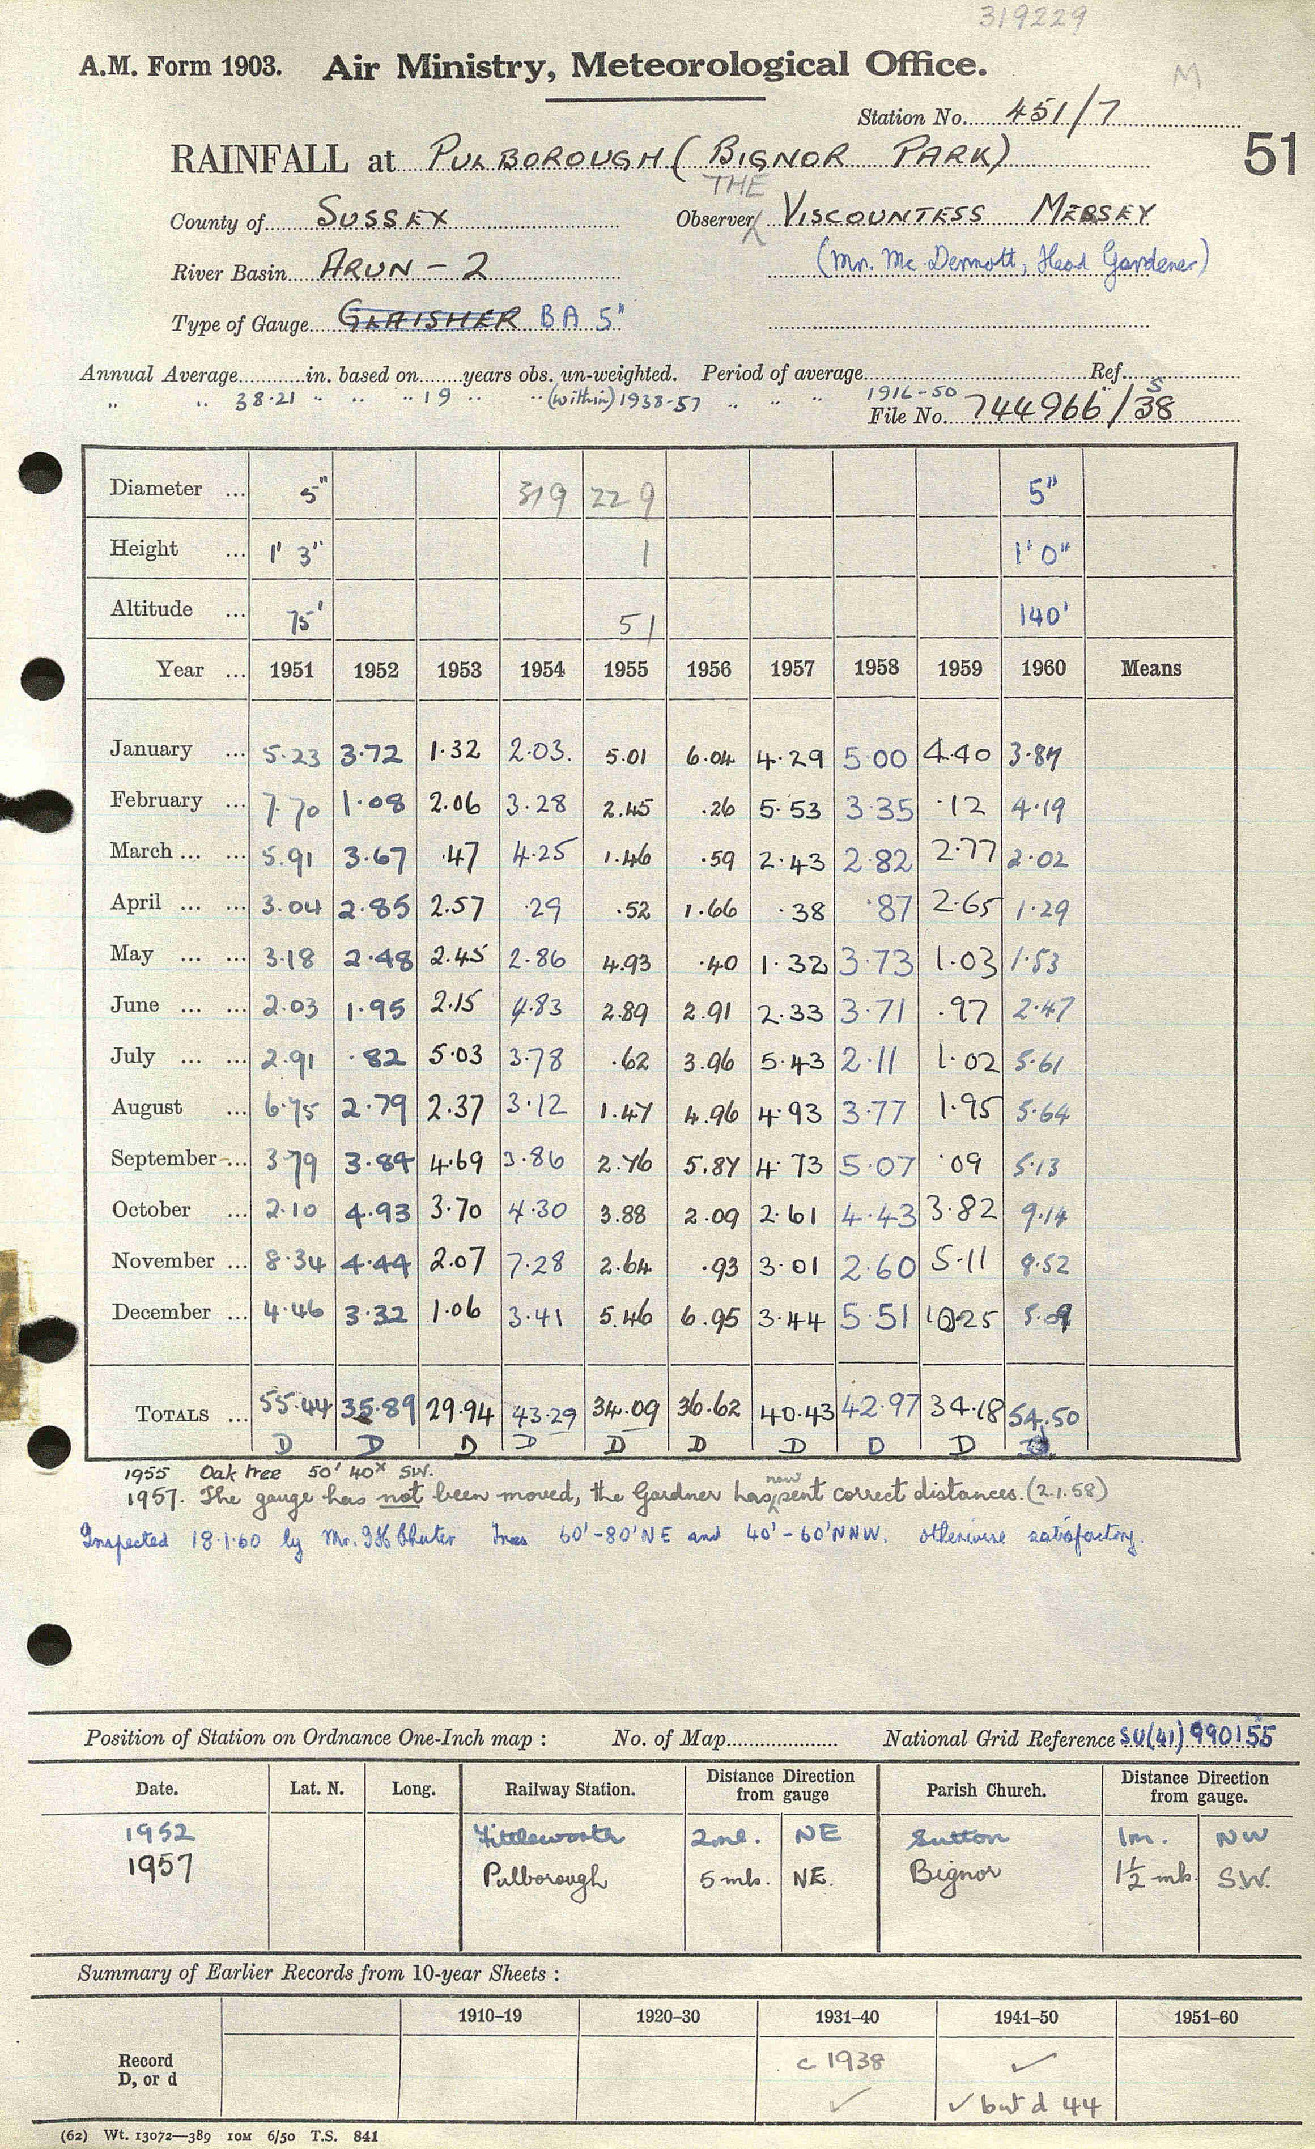 319229
A.M. Form 1903. Air Ministry, Meteorological Office. M
Station No. 451/7
RAINFALL at PULBOROUGH (BIGNOR PARK) 51
THE
County of SUSSEX Observer VISCOUNTESS MERSEY
River Basin ARUN - 2 (Mr. Mc Dermott, Head Gardener)
Type of Gauge GLAISHER BA 5"
Annual Average in. based on years obs. un-weighted. Period of average Ref.
" " 38.21 " " " 19 " " (within) 1938-57 " " " 1916-50 " S
File No. 744966/38
Diameter ... 5" 319 22 9 5"
Height ... 1' 3" 1 1' 0"
Altitude ... 75' 51 140'
Year ... 1951 1952 1953 1954 1955 1956 1957 1958 1959 1960 Means
January ... 5.23 3.72 1.32 2.03. 5.01 6.04 4.29 5.00 4.40 3.87
February ... 7.70 1.08 2.06 3.28 2.45 .26 5.53 3.35 .12 4.19
March ... ... 5.91 3.67 .47 4.25 1.46 .59 2.43 2.82 2.77 2.02
April ... ... 3.04 2.85 2.57 .29 .52 1.66 .38 .87 2.65 1.29
May ... ... 3.18 2.48 2.45 2.86 4.93 .40 1.32 3.73 1.03 1.53
June ... ... 2.03 1.95 2.15 4.83 2.89 2.91 2.33 3.71 .97 2.47
July ... ... 2.91 .82 5.03 3.78 .62 3.96 5.43 2.11 1.02 5.61
August ... 6.75 2.79 2.37 3.12 1.47 4.96 4.93 3.77 1.95 5.64
September ... 3.79 3.84 4.69 3.86 2.76 5.87 4.73 5.07 .09 5.13
October ... 2.10 4.93 3.70 4.30 3.88 2.09 2.61 4.43 3.82 9.14
November ... 8.34 4.44 2.07 7.28 2.64 .93 3.01 2.60 5.11 8.52
December ... 4.46 3.32 1.06 3.41 5.46 6.95 3.44 5.51 10.25 5.09
TOTALS ... 55.44 35.89 29.94 43.29 34.09 36.62 40.43 42.97 34.18 54.50
D D D D D D D D D
1955 Oak tree 50' 40x SW.
now
1957. The gauge has not been moved, the Gardner has sent correct distances. (2.1.58)
Inspected 18.1.60 by Mr. Trees 60'-80' NE and 40'-60' NNW. otherwise satisfactory.
Position of Station on Ordnance One-Inch map : No. of Map National Grid Reference SU(41) 990155
Date. Lat. N. Long. Railway Station. Distance Direction from gauge Parish Church. Distance Direction from gauge.
1952 Fittleworth 2ml. NE Sutton 1m. NW
1957 Pulborough 5 mls. NE. Bignor 1½ mls SW.
Summary of Earlier Records from 10-year Sheets :
1910–19 1920–30 1931–40 1941–50 1951–60
Record D, or d c 1938 ✓
✓ ✓ but d 44
(62) Wt. 13072—389 10M 6/50 T.S. 841